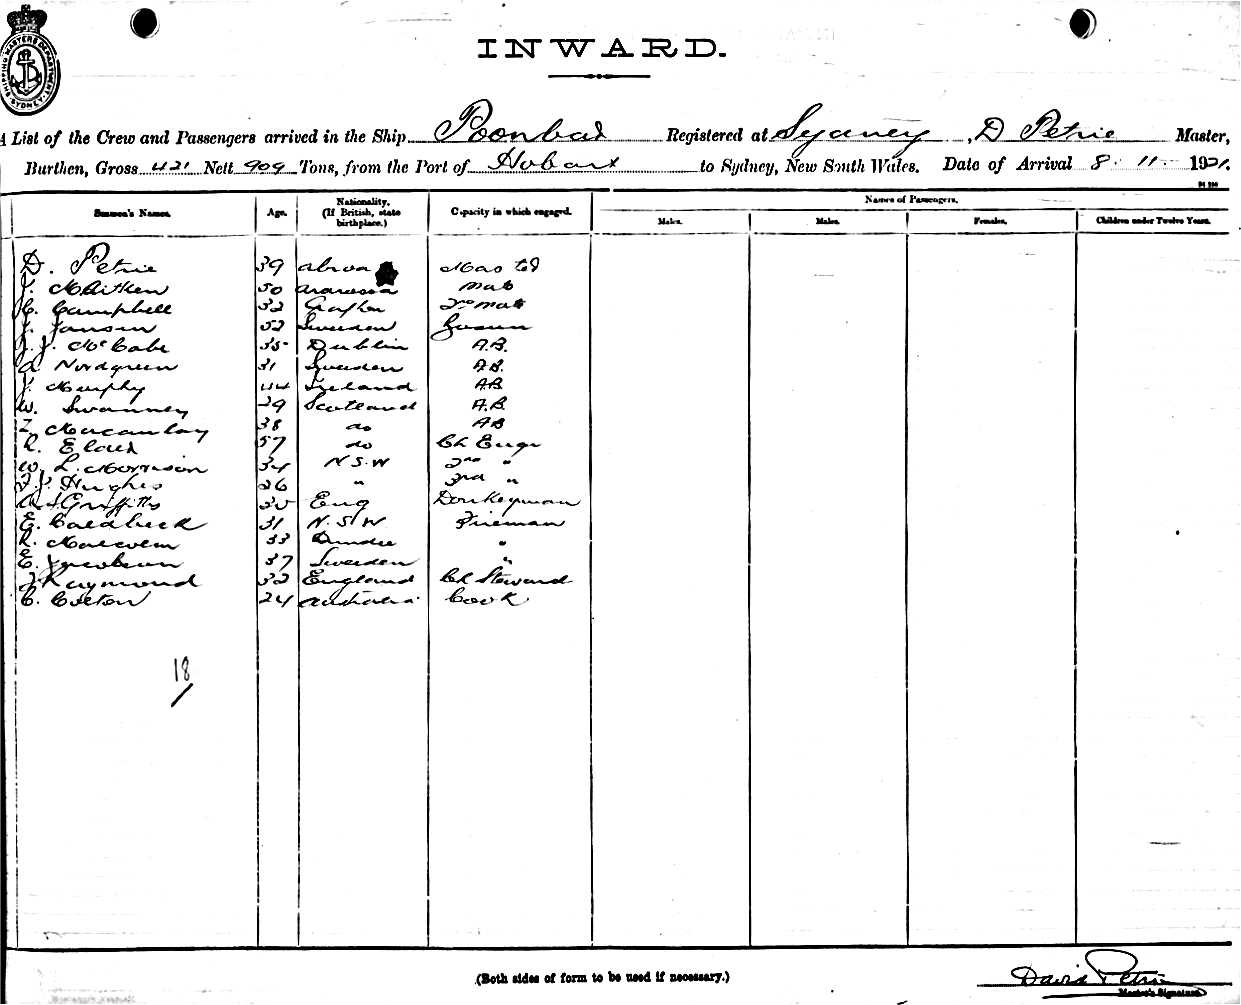 SHIPPING MASTERS DEPARTMENT SYDNEY
INWARD.
A List of the Crew and Passengers arrived in the Ship Poonbar Registered at Sydney, D Petrie Master,
Burthen, Gross 421 Nett 909 Tons, from the Port of Hobart to Sydney, New South Wales. Date of Arrival 8. 11 1921.
Names of Passengers.
Seamen's Names. Age. Nationality. (If British, state birthplace.) Capacity in which engaged. Males. Males. Females. Children under Twelve Years.
D. Petrie 39
J. McAitken 50 mate
C. Campbell 32 Grafton 2nd mate
J. Jansin 52 Sweeden
J. J. McCabe 35 Dublin A.B.
A Nordgreen 31 Sweeden A.B.
J. Murphy 44 Ireland A.B.
W. Swanney 29 Scotland A.B.
Macaulay 38 do AB
R. 57 do Ch Engr
W. L. Morrison 34 N.S.W 2nd "
J. Hughes 26 " 3rd "
Griffiths 35 Eng Donkeyman
E. Caldbeck 31 N.S.W Fireman
R. Malcolm 33 Dundee "
E. Jacobson 37 Sweeden "
J Raymond 32 England Ch Steward
C. Colton 24 Australia Cook
18
(Both sides of form to be used if necessary.)
David Petrie
Master's Signature